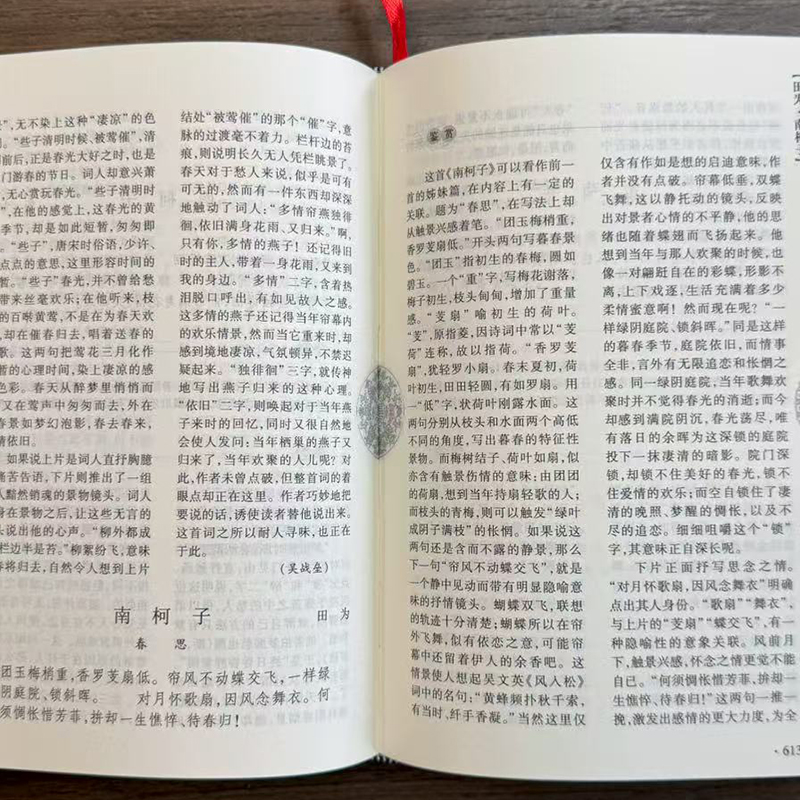 ”,无不染上这种“凄凉”的色
。“些子清明时候、被莺催”,清
前后,正是春光大好之时,也是
门游春的节日。词人却意兴萧
无心赏玩春光。“些子清明时
”,在他的感觉上,这春光的黄
季节,却是如此短暂,匆匆即
。“些子”,唐宋时俗语,少许、
点点的意思,这里形容时间的
暂。“些子”春光,并不曾给愁
带来丝毫欢乐;在他听来,枝
的百啭黄莺,不是在为春天欢
却在催春归去,唱着送春的
歌。这两句把莺花三月化作
暂的心理时间,染上凄凉的感
色彩。春天从醉梦里悄悄而
又在莺声中匆匆而去,外在
春景如梦幻泡影,春去春来,
情依旧。
如果说上片是词人直抒胸臆
痛苦告语,下片则推出了一组
人黯然销魂的景物镜头。词人
身在景物之后,让这些无言的
说出他的心声。“柳外都成
栏边半是苔。”柳絮纷飞,意味
春将归去,自然令人想到上片
结处“被莺催”的那个“催”字,意
脉的过渡毫不着力。栏杆边的苔
痕,则说明长久无人凭栏眺景了。
春天对于愁人来说,似乎是可有
可无的,然而有一件东西却深深
地触动了词人:“多情帘燕独徘
徊,依旧满身花雨、又归来。”啊,
只有你,多情的燕子!还记得旧
时的主人,带着一身花雨,又来到
我的身边。“多情”二字,含着热
泪脱口呼出,有如见故人之感。
这多情的燕子还记得当年帘幕内
的欢乐情景,然而当它重来时,却
感到境地凄凉,气氛顿异,不禁迟
疑起来。“独徘徊”三字,就传神
地写出燕子归来的这种心理。
“依旧”二字,则唤起对于当年燕
子来时的回忆,同时又很自然地
会使人发问:当年栖巢的燕子又
归来了,当年欢聚的人儿呢?对
此,作者未曾点破,但整首词的着
眼点却正在这里。作者巧妙地把
要说的话,诱使读者替他说出来。
这首词之所以耐人寻味,也正在
于此。
(吴战垒)
南柯子 田为
春思
团玉梅梢重,香罗芰扇低。帘风不动蝶交飞,一样绿
阴庭院、锁斜晖。 对月怀歌扇,因风念舞衣。何
须惆怅惜芳菲,拚却一生憔悴、待春归!
鉴赏
这首《南柯子》可以看作前一
首的姊妹篇,在内容上有一定的
关联。题为“春思”,在写法上却
从触景兴感着笔。“团玉梅梢重,
香罗芰扇低。”开头两句写暮春景
色。“团玉”指初生的春梅,圆如
碧玉。一个“重”字,写梅花谢落,
梅子初生,枝头甸甸,增加了重量
感。“芰扇”喻初生的荷叶。
“芰”,原指菱,因诗词中常以“芰
荷”连称,故以指荷。“香罗芰
扇”,犹轻罗小扇。春末夏初,荷
叶初生,田田轻圆,有如罗扇。用
一“低”字,状荷叶刚露水面。这
两句分别从枝头和水面两个高低
不同的角度,写出暮春的特征性
景物。而梅树结子、荷叶如扇,似
亦含有触景伤情的意味:由团团
的荷扇,想到当年持扇轻歌的人;
而枝头的青梅,则可以触发“绿叶
成阴子满枝”的怅惘。如果说这
两句还是含而不露的静景,那么
下一句“帘风不动蝶交飞”,就是
一个静中见动而带有明显隐喻意
味的抒情镜头。蝴蝶双飞,联想
的轨迹十分清楚;蝴蝶所以在帘
外飞舞,似有依恋之意,可能帘
幕中还留着伊人的余香吧。这
情景使人想起吴文英《风入松》
词中的名句:“黄蜂频扑秋千索,
有当时、纤手香凝。”当然这里仅
仅含有作如是想的启迪意味,作
者并没有点破。帘幕低垂,双蝶
飞舞,这以静托动的镜头,反映
出对景者心情的不平静,他的思
绪也随着蝶翅而飞扬起来。他
想到当年与那人欢聚的时候,也
像一对翩跹自在的彩蝶,形影不
离,上下戏逐,生活充满着多少
柔情蜜意啊!然而现在呢?“一
样绿阴庭院、锁斜晖。”同是这样
的暮春季节,庭院依旧,而情事
全非,言外有无限追恋和怅惘之
感。同一绿阴庭院,当年歌舞欢
聚时并不觉得春光的消逝;而今
却感到满院阴沉,春光荡尽,唯
有落日的余晖为这深锁的庭院
投下一抹凄清的暗影。院门深
锁,却锁不住美好的春光,锁不
住爱情的欢乐;而空自锁住了凄
清的晚照、梦醒的惆怅,以及不
尽的追恋。细细咀嚼这个“锁”
字,其意味正自深长呢。
下片正面抒写思念之情。
“对月怀歌扇,因风念舞衣”明确
点出其人身份。“歌扇”“舞衣”,
与上片的“芰扇”“蝶交飞”,有一
种隐喻性的意象关联。风前月
下,触景兴感,怀念之情更觉不能
自已。“何须惆怅惜芳菲,拚却一
生憔悴、待春归!”这两句一推一
挽,激发出感情的更大力度,为全
·613